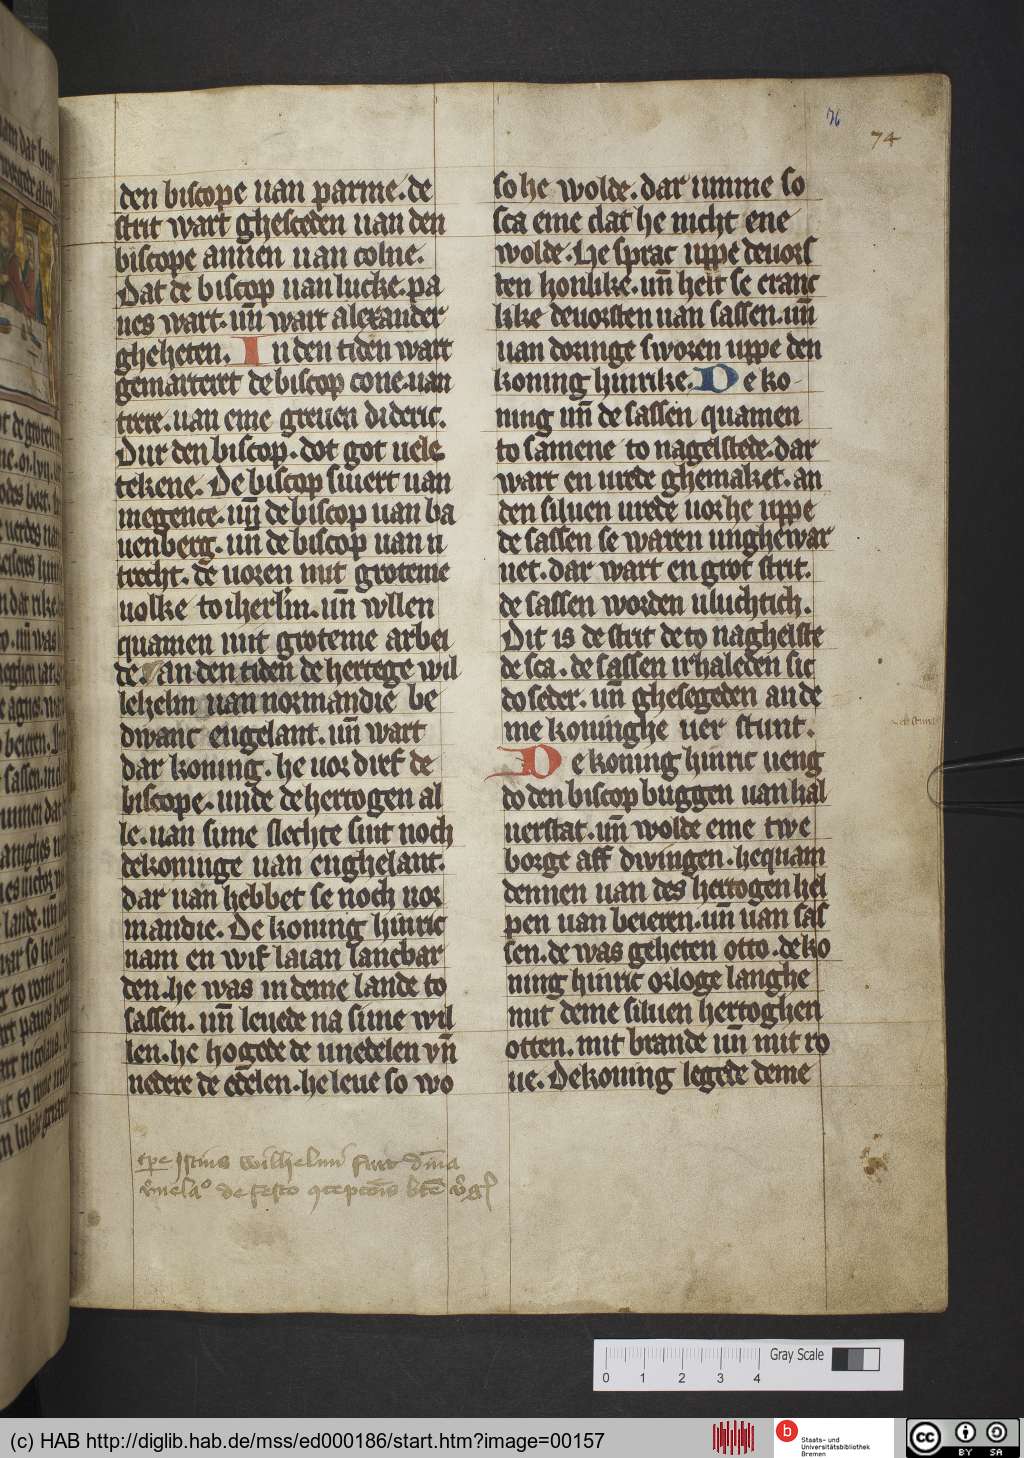 76
74
den biscope uan parme. de
strit wart ghesceden uan den
biscope annen uan colne.
Dat de biscop uan lucke. pa
ues wart. un̄ wart alexander
gheheten. In den tiden wart
gemarteret de biscop cone. uan
trere. uan eme greuen dideric.
Dur den biscop. dot got uele
tekene. De biscop siuert uan
megence. un̄ de biscop uan ba
uenberg. un̄ de biscop uan u
trecht. de uoren mit groteme
uolke to iherl̄m. un̄ wllen
quamen mit groteme arbei
de. an den tiden de hertege wil
lehelm uan normandie be
dwanc engelant. un̄ wart
dar koning. he uor dref de
biscope. unde de hertogen al
le. uan sime slechte sint noch
dekoninge uan enghelant.
dar uan hebbet se noch nor
mandie. De koning hinric
nam en wif laian lancbar
den. he was in deme lande to
sassen. un̄ leuede na sime wil
len. he hogede de unedelen vn̄
nedere de edelen. he leue so wo
so he wolde. dar umme so
sca eme dat he nicht ene
wolde. He sprac uppe deuors
ten honlike. un̄ heit se cranc
like deuorsten uan sassen. un̄
uan doringe sworen uppe den
koning hinrike. De ko-
ning un̄ de sassen quamen
to samene to nagelstede. dar
wart en urede ghemaket. an
den siluen urede uor he uppe
de sassen se waren unghewar
net. dar wart en grot strit.
de sassen worden uluchtich.
Dit is de strit de to naghelste
de sca. de sassen irhaleden sic
do seder. un̄ ghesegeden an de
me koninghe uer stunt.
De koning hinric ueng
do den biscop buggen uan hal
uerstat. un̄ wolde eme twe
borge aff dwingen. he quam
dennen uan des hertogen hel
pen uan beieren. un̄ uan sas
sen. de was geheten otto. de ko
ning hinric orloge langhe
mit deme siluen hertoghen
otten. mit brande un̄ mit ro
ue. De koning legede deme
tp̄e istius wilhelmi fuit
de festo
(c) HAB http://diglib.hab.de/mss/ed000186/start.htm?image=00157
Gray Scale
0 1 2 3 4
Staats- und
Universitätsbibliothek
Bremen
cc BY SA